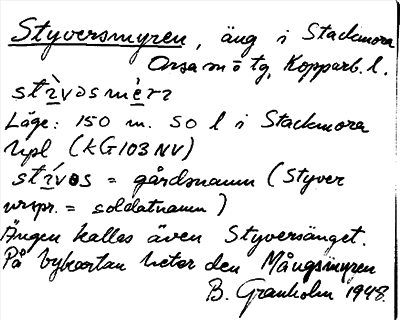 Styversmyren, äng i Stackmora
Orsa sn ö tg, Kopparb. l.
Läge: 150 m. SO l i Stackmora
upl (KG103NV)
= gårdsnamn (Styver
urspr. = soldatnamn)
Ängen kallas även Styversänget.
På bykartan heter den Mångsmyren
B. Granholm 1948.